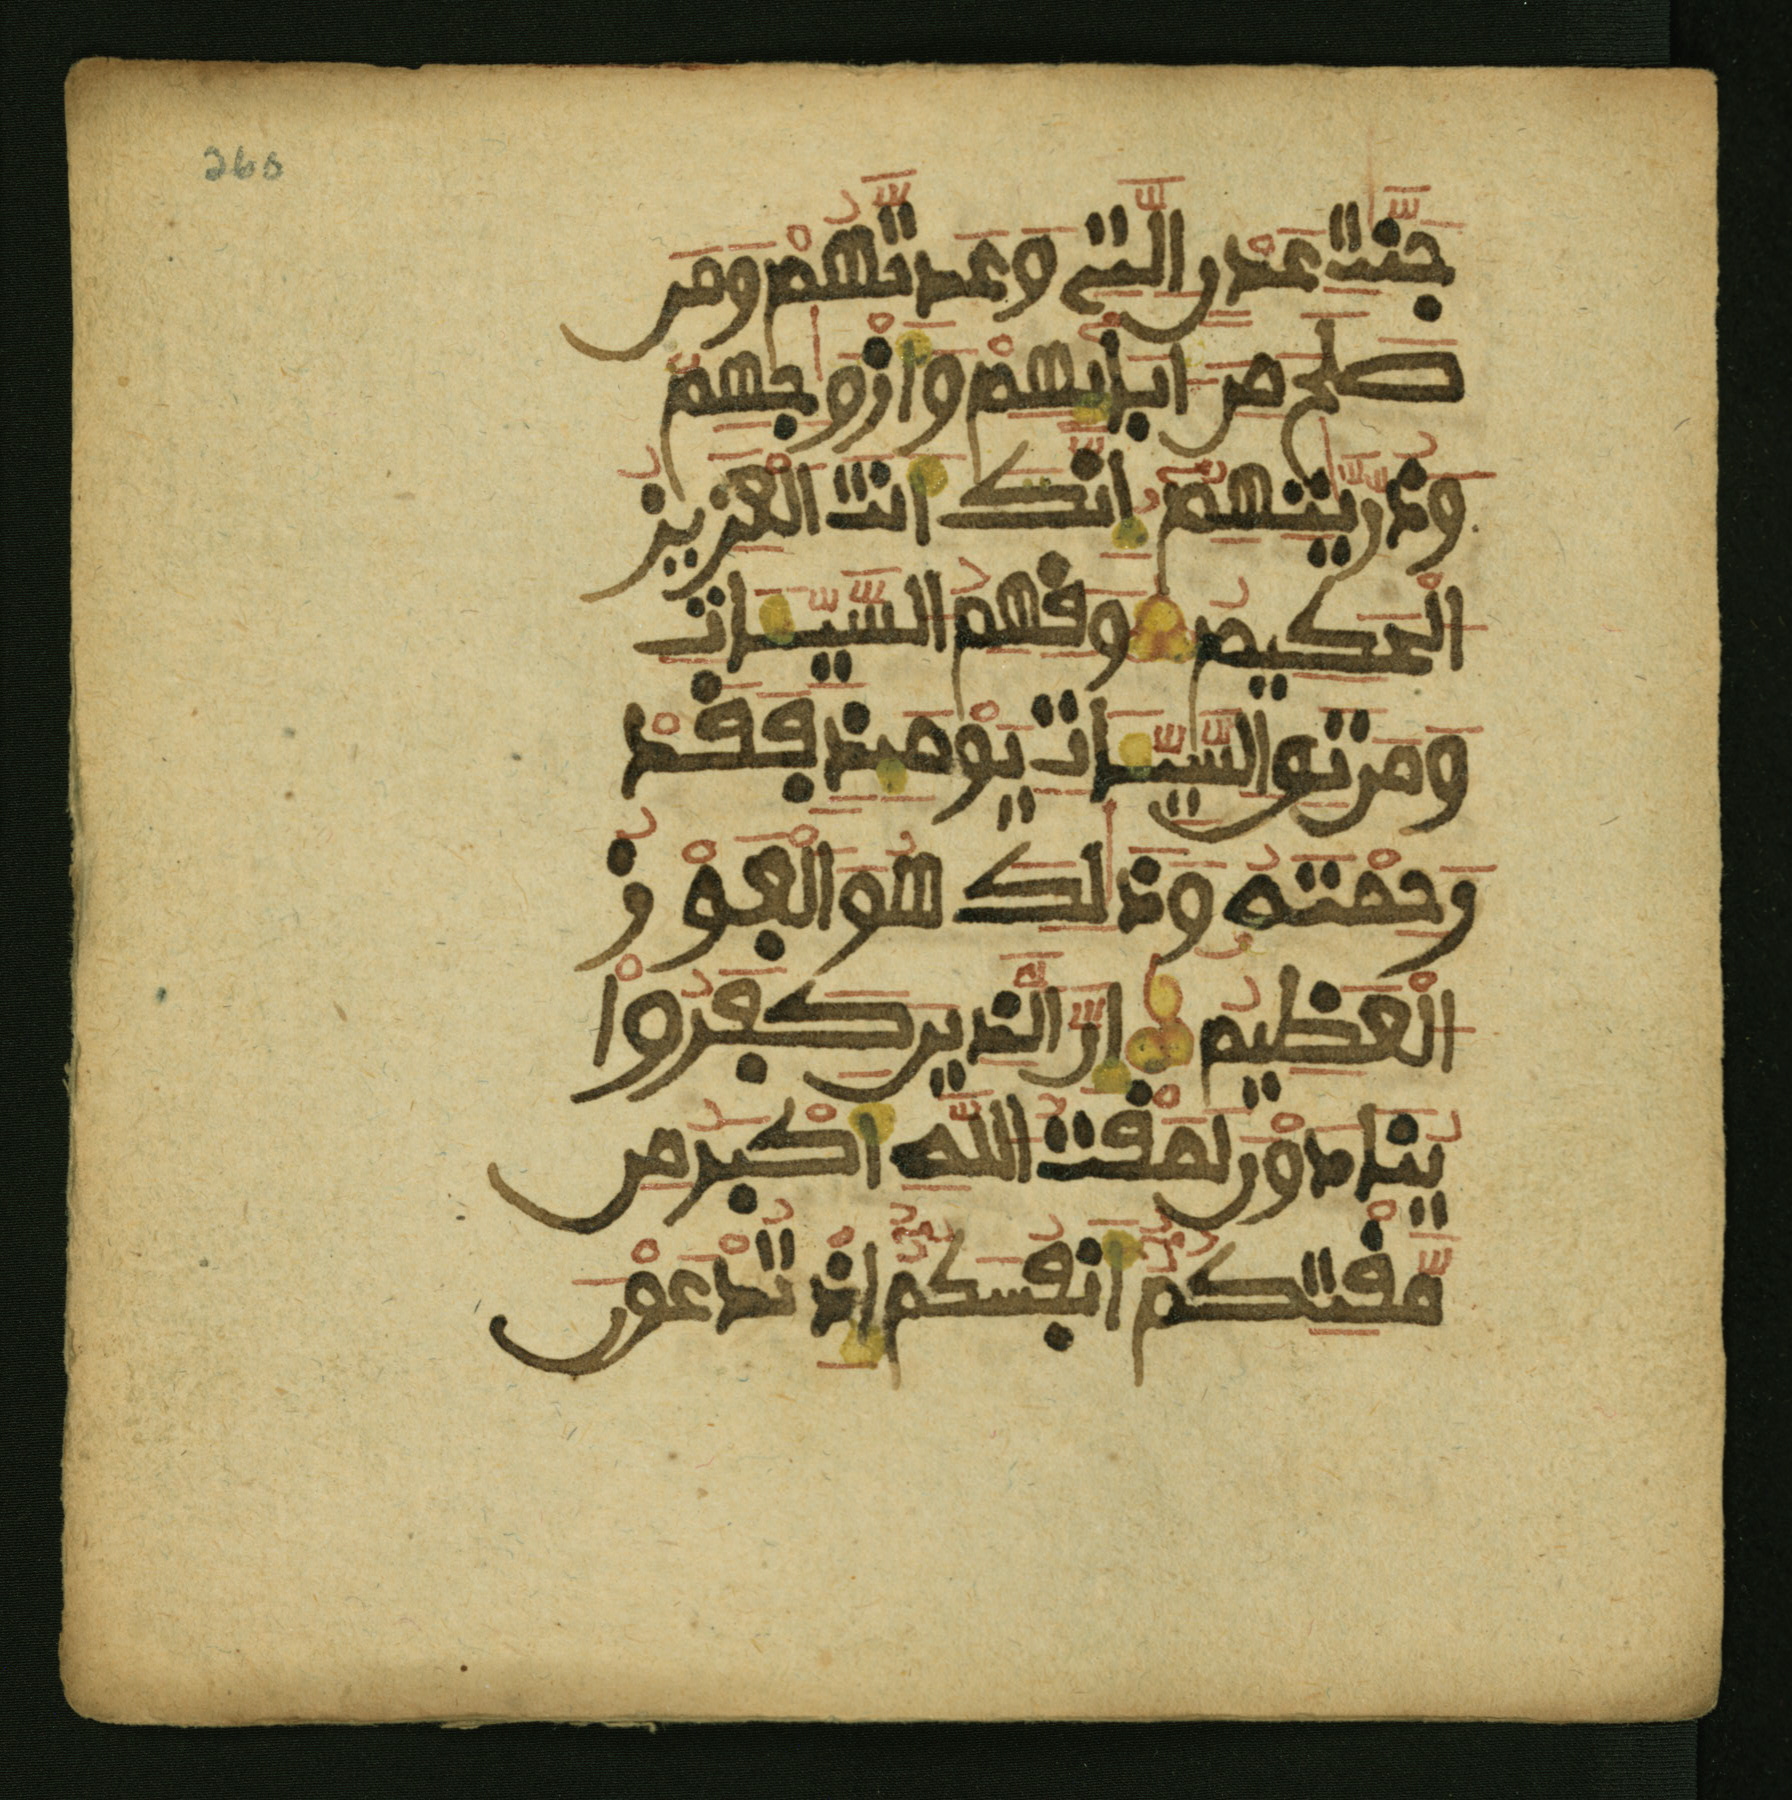 265
جَنَّٰتِ عَدْنٍ الَّتِے وَعَدتَّهُمْ وَمَن
صَلَحَ مِنَ ابَآئِهِمْ وَأَزْوَٰجِهِمْ
وَذُرِّيَّٰتِهِمُۥٓ إِنَّكَ أَنتَ الْعَزِيزُ
الْحَكِيمُ وَقِهِمُ السَّيِّـَٔاتِ
وَمَن تَقِ السَّيِّـَٔاتِ يَوْمَئِذٍ فَقَدْ
رَحِمْتَهُۥ وَذَٰلِكَ هُوَ الْفَوْزُ
الْعَظِيمُ إِنَّ الَّذِينَ كَفَرُوا
يُنَادَوْنَ لَمَقْتُ اللَّهِ أَكْبَرُ مِن
مَّقْتِكُمُۥٓ أَنفُسَكُمُۥٓ إِذْ تُدْعَوْنَ